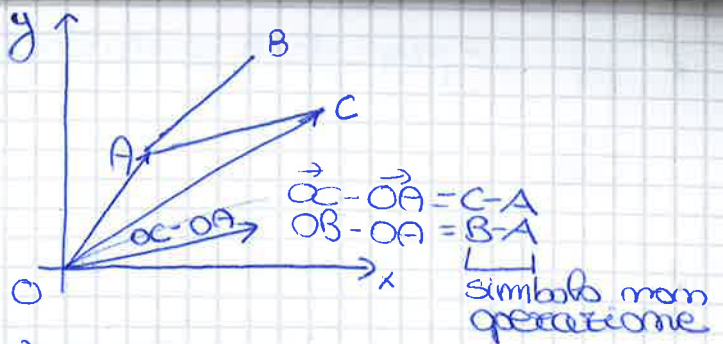 y
B
C
A
OC-OA
→OC-→OA=C-A
OB-OA=B-A
O
x
simbolo non
operazione